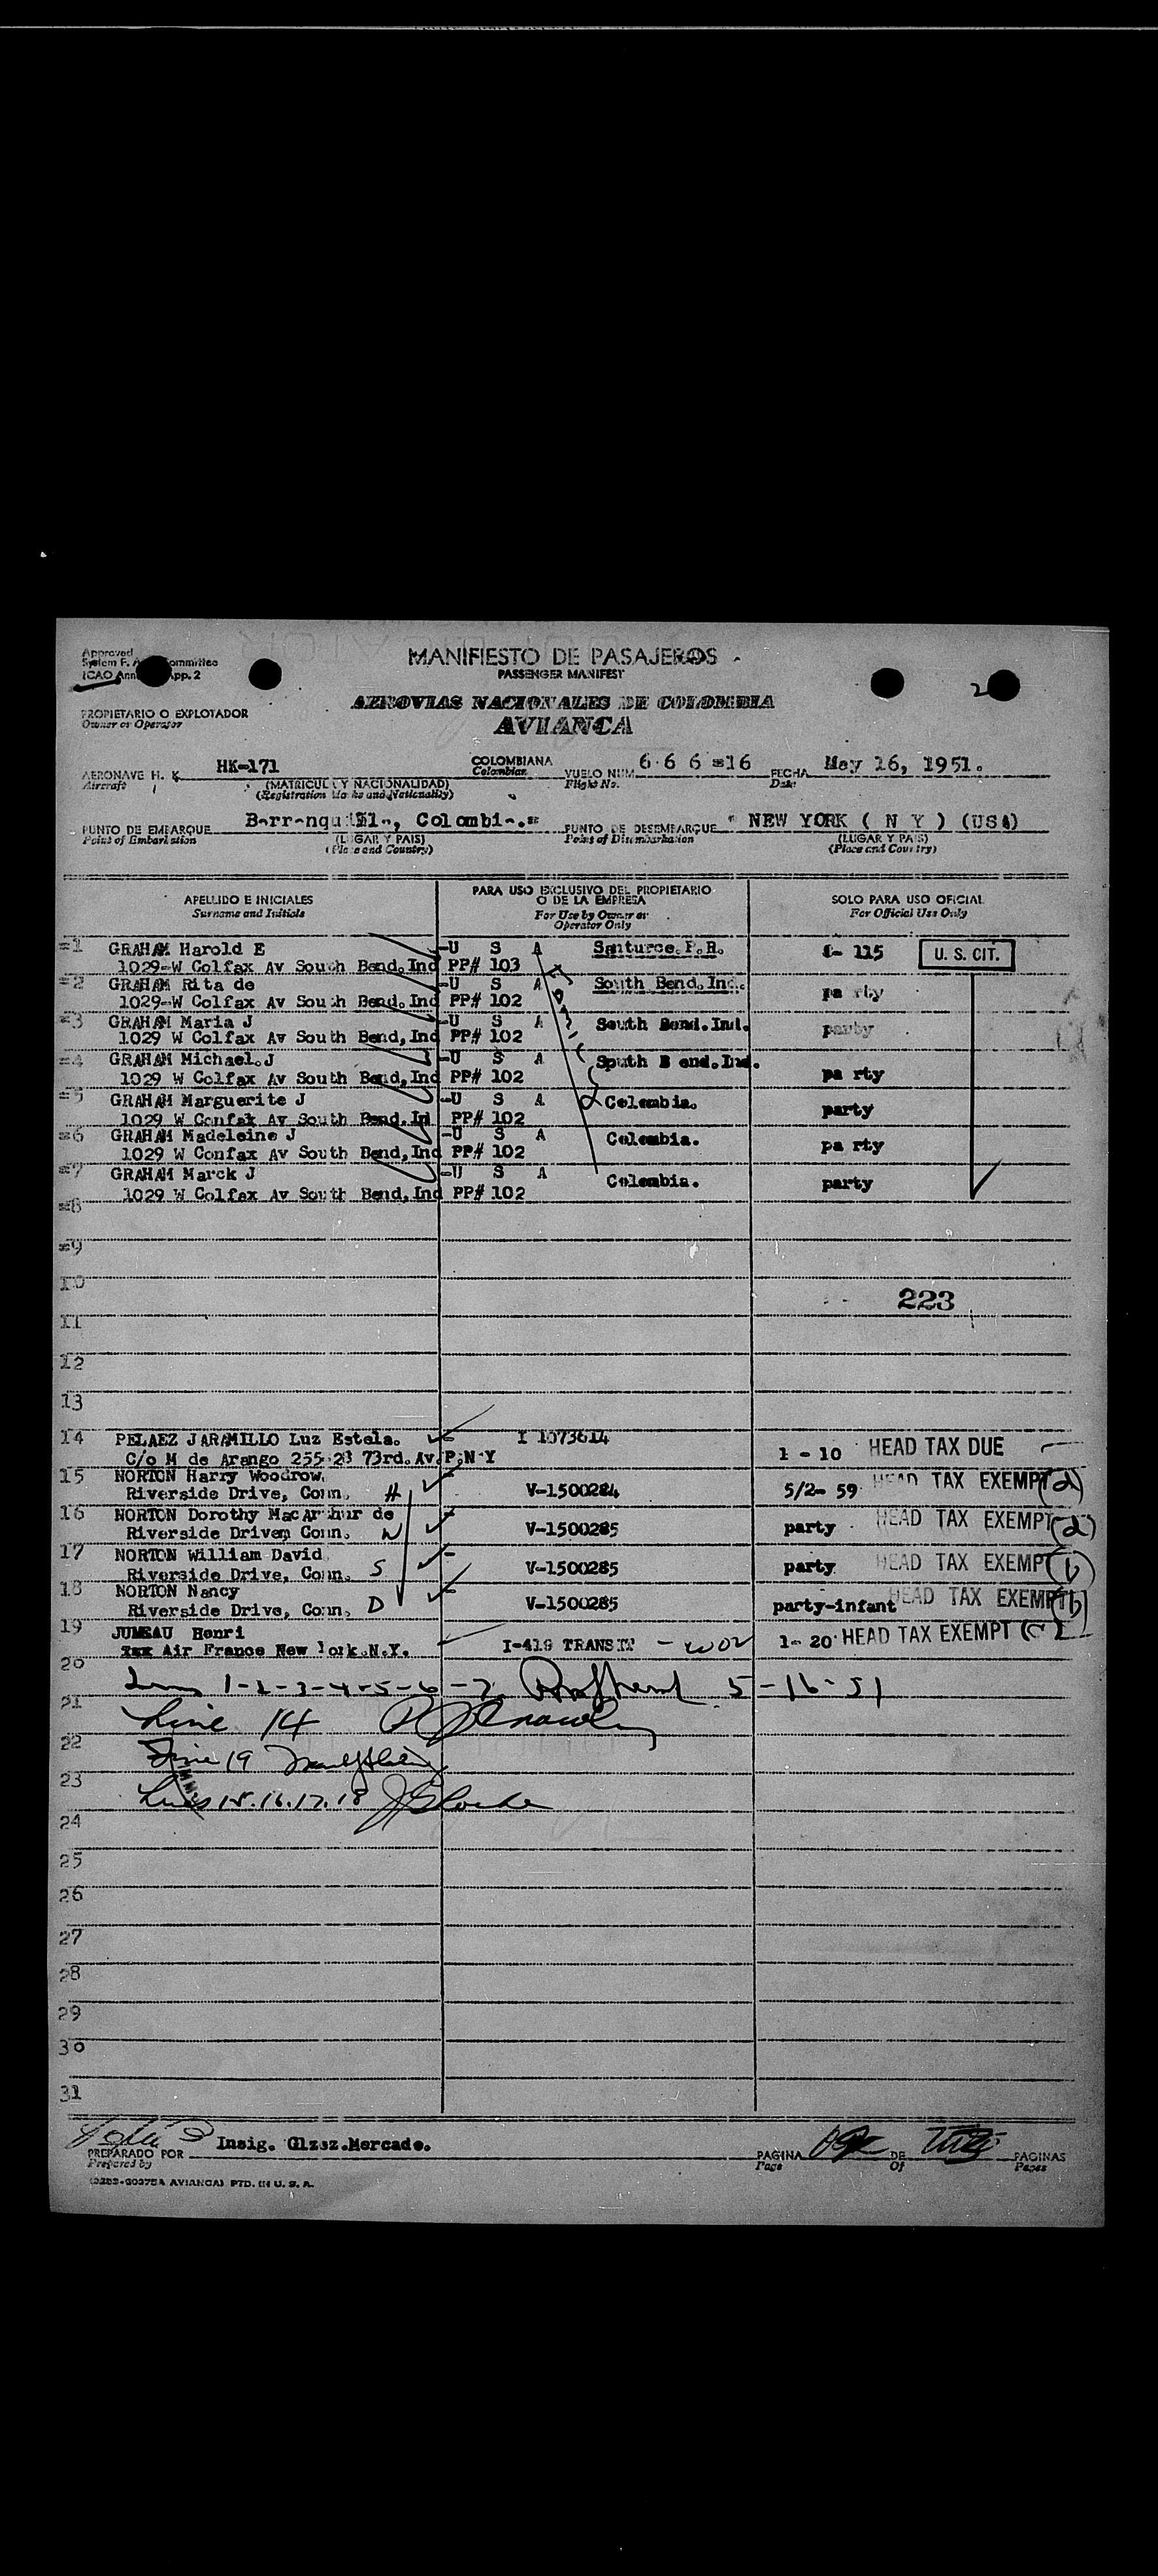 Approved
System F. A. Committee
ICAO Ann App. 2
MANIFIESTO DE PASAJEROS
PASSENGER MANIFEST
2
PROPIETARIO O EXPLOTADOR
Owner or Operator
AEROVIAS NACIONALES DE COLOMBIA
AVIANCA
AERONAVE H. K. HK-171 COLOMBIANA VUELO NUM. 6 6 6 =16 FECHA May 16, 1951.
Aircraft (MATRICULA Y NACIONALIDAD) Colombian Flight No. Date
(Registration Marks and Nationality)
PUNTO DE EMBARQUE Barranquilla, Colombia.= PUNTO DE DESEMBARQUE NEW YORK ( N Y ) (USA)
Point of Embarkation (LUGAR Y PAIS) Point of Disembarkation (LUGAR Y PAIS)
(Place and Country) (Place and Country)
APELLIDO E INICIALES PARA USO EXCLUSIVO DEL PROPIETARIO O DE LA EMPRESA SOLO PARA USO OFICIAL
Surname and Initials For Use by Owner or Operator Only For Official Use Only
=1 GRAHAM Harold E -U S A Santurce.P.R. 1- 115 U. S. CIT.
1029-W Colfax Av South Bend.Ind PP# 103
=2 GRAHAM Rita de -U S A South Bend.Ind. pa rty
1029-W Colfax Av South Bend.Ind PP# 102
=3 GRAHAM Maria J -U S A South Bend.Ind. party
1029 W Colfax Av South Bend,Ind PP# 102
=4 GRAHAM Michael.J -U S A Sputh B end.Ind. pa rty
1029 W Colfax Av South Bend,Ind PP# 102
=5 GRAHAM Marguerite J -U S A Colombia. party
1029 W Confax Av South Bend.In PP# 102
=6 GRAHAM Madeleine J -U S A Colombia. pa rty
1029 W Confax Av South Bend,Ind PP# 102
=7 GRAHAM Marck J -U S A Colombia. party
1029 W Colfax Av South Bend,Ind PP# 102
=8
=9
10
223
11
12
13
14 PELAEZ JARAMILLO Luz Estela. I 1073614
C/o M de Arango 255-23 73rd.Av.P.N-Y 1 - 10 HEAD TAX DUE
15 NORTON Harry Woodrow.
Riverside Drive, Conn. H V-1500284 5/2- 59 HEAD TAX EXEMPT (d)
16 NORTON Dorothy MacArthur de
Riverside Drivem Conn. W V-1500285 party HEAD TAX EXEMPT (d)
17 NORTON William David
Riverside Drive, Conn. S V-1500285 party HEAD TAX EXEMPT (b)
18 NORTON Nancy
Riverside Drive, Conn, D V-1500285 party-infant HEAD TAX EXEMPT (b)
19 JUMEAU Henri
xxx Air France New York.N.Y. I-419 TRANSIT 1- 20 HEAD TAX EXEMPT (c)
20
1-2-3-4-5-6-7 5-16-51
21
Line 14
22
Line 19
23
Lines 15.16.17.18
24
25
26
27
28
29
30
31
PREPARADO POR Insig. Glzsz.Mercado. PAGINA DE PAGINAS
Prepared by Page Of Pages
AVIANCA) PTD. IN U. S. A.